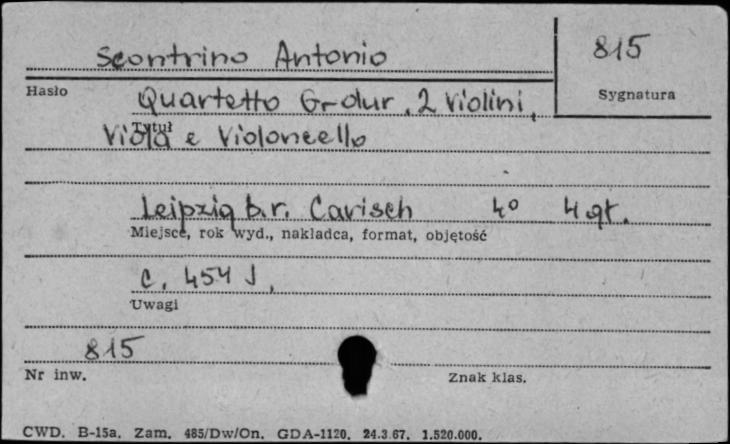 Scontrino Antonio
815
Hasło
Sygnatura
Quartetto G-dur, 2 Violini,
Tytuł
Viola e Violoncello
Leipzig b.r. Carisch 4° 4 gt.
Miejsce, rok wyd., nakładca, format, objętość
C. 454 J,
Uwagi
815
Nr inw.
Znak klas.
CWD. B-15a. Zam. 485/Dw/On. GDA-1120. 24.3.67. 1.520.000.